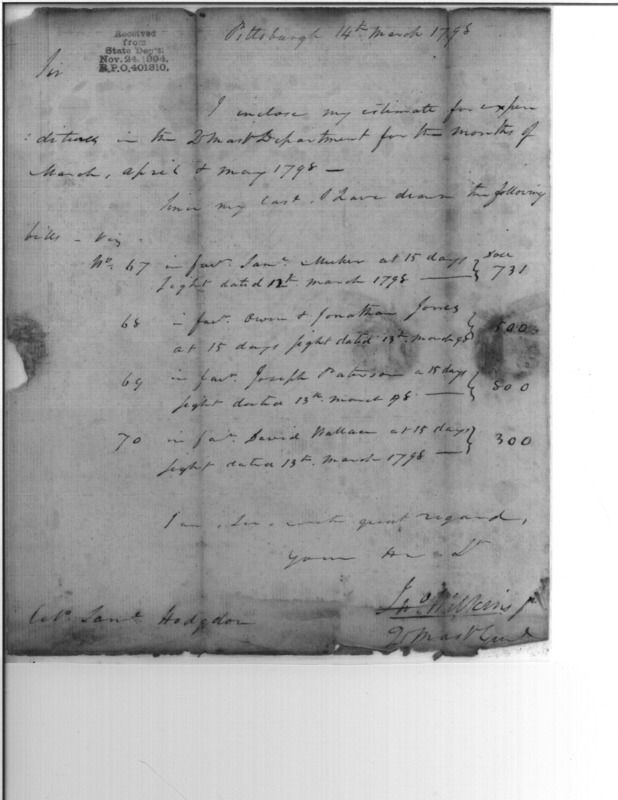 Received
from
State Dep't.
Nov. 24, 1894.
R.P.O. 401310.
Pittsburgh 14th March 1798
Sir
I inclose my estimate for expen
: ditures in the Q Mast Department for the months of
March, April & May 1798 —
Since my last, I have drawn the following
bills — Viz
No. 67 in favr. Saml. Meeker at 15 days
Sight dated 12th March 1798 — } 731
68 in favr. Owen & Jonathan Jones
at 15 days sight dated 13th. March 98 } 500
69 in favr. Joseph Paterson a 15 days
sight dated 13th. March 98 — } 800
70 in favr. David Wallace at 15 days
sight dated 13th. March 1798 — } 300
I am, Sir, with great regard,
Your
Jno. Wilkins Jr
Q Mast Genl
Saml. Hodgdon